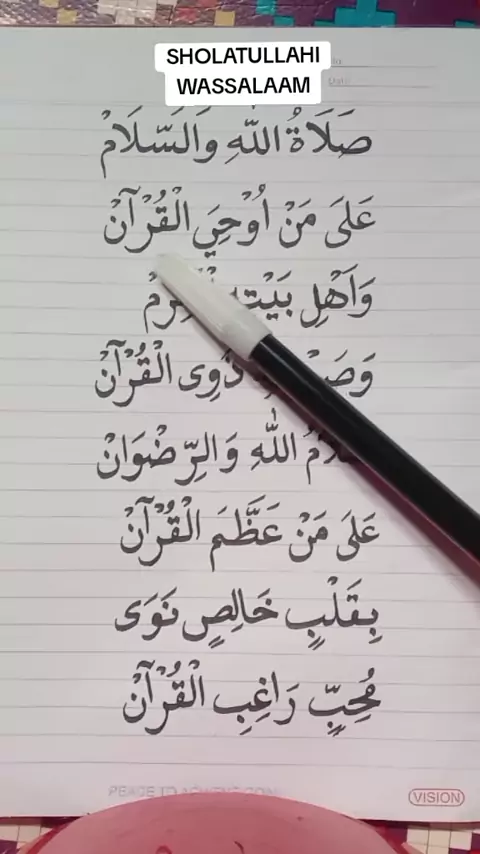 SHOLATULLAHI
WASSALAAM
صَلَاةُ اللّٰهِ وَالسَّلَامْ
عَلَى مَنْ اُوْحِيَ الْقُرْآنْ
وَاَهْلِ بَيْتِهِ
ذَوِى الْقُرْآنْ
اللّٰهِ وَالرِّضْوَانْ
عَلَى مَنْ عَظَّمَ الْقُرْآنْ
بِقَلْبٍ خَالِصٍ نَوَى
مُحِبٍّ رَاغِبِ الْقُرْآنْ
VISION